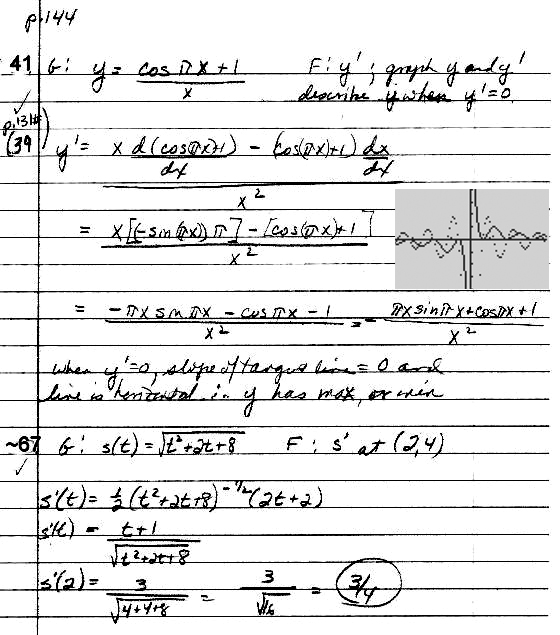 p.144
41 G: y = (cos πx + 1)/x F: y' ; graph y and y'
describe y when y' = 0.
p.131#
(39)
y' = [x d(cos(πx)+1)/dx − (cos(πx)+1) dx/dx] / x²
= [x[(-sin(πx))π] − [cos(πx)+1]] / x²
= (−πx sin πx − cos πx − 1)/x² = − (πx sin πx + cos πx + 1)/x²
when y'=0, slope of tangent line = 0 and
line is horizontal ∴ y has max, or min
~67 G: s(t) = √(t²+2t+8) F: s' at (2,4)
s'(t) = ½(t²+2t+8)^(-1/2)(2t+2)
s'(t) = (t+1)/√(t²+2t+8)
s'(2) = 3/√(4+4+8) = 3/√16 = 3/4